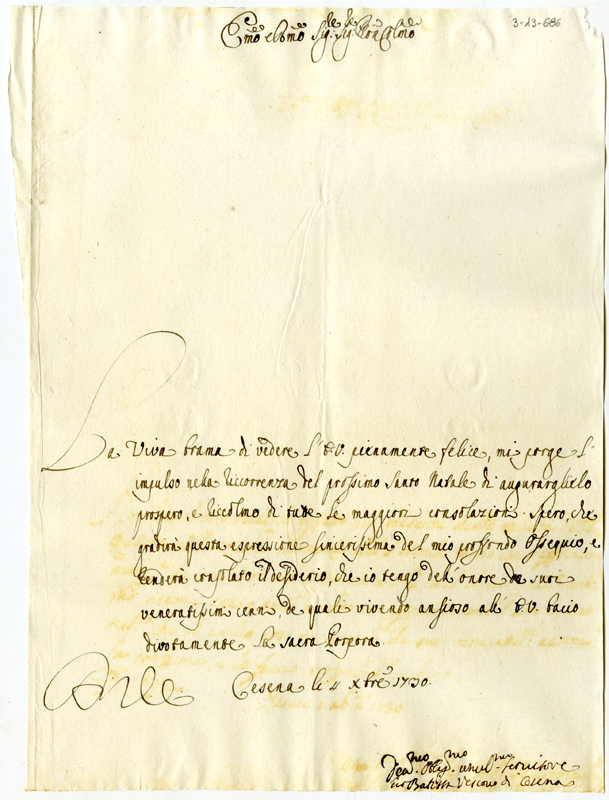 3-13-686
Emo e Rmo Sig.re Sig.re Pron Colmo
La Viva brama di vedere l'E.V. pienamente felice, mi porge l'
impulso nella riccorrenza del prossimo Santo Natale di augurarglielo
prospero, e riccolmo di tutte le maggiori consolazioni. Spero, che
gradirà questa espressione sincerissima del mio profondo Ossequio, e
renderà consolato il desiderio, che io tengo dell'onore de suoi
veneratissimi cenni, de quali vivendo ansioso all'E.V. bacio
divotamente la sacra Porpora.
Cesena li 4 Xbre 1730.
Dev.mo Obl.mo servitore
Gio Battista Vescovo di Cesena